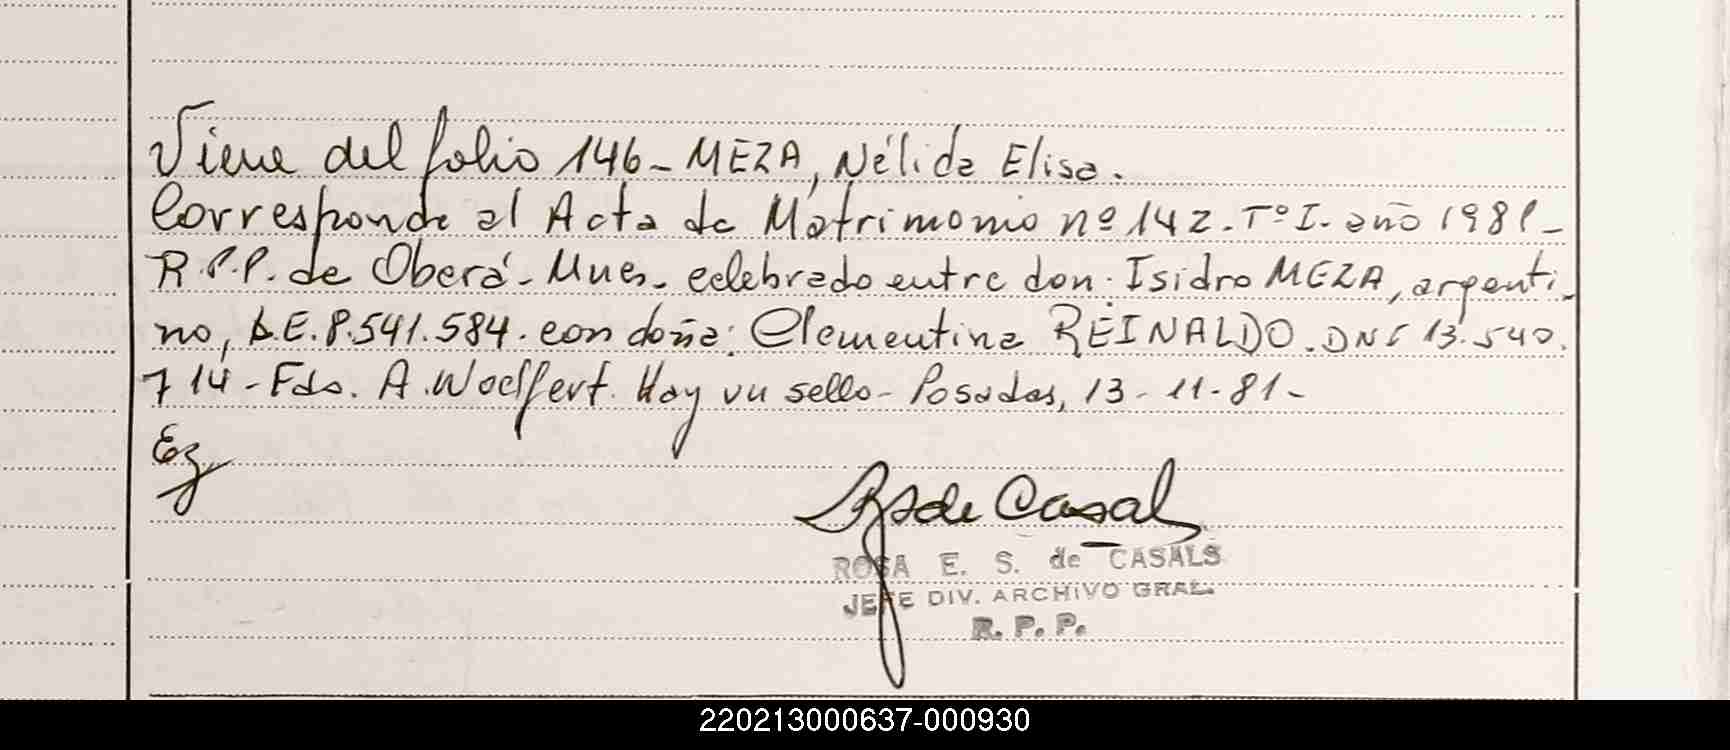 Viene del folio 146 - MEZA, Nélida Elisa.
Corresponde al Acta de Matrimonio nº 142. Tº I. año 1981 -
R.P.P. de Oberá - Mnes. celebrado entre don: Isidro MEZA, argenti-
no, L.E. 8.541.584. con doña: Clementina REINALDO. DNI 13.540.
714 - Fdo. A. Woelfert. Hay un sello - Posadas, 13 - 11 - 81 -
Ez
RS de Casal
ROSA E. S. de CASALS
JEFE DIV. ARCHIVO GRAL.
R. P. P.
220213000637-000930